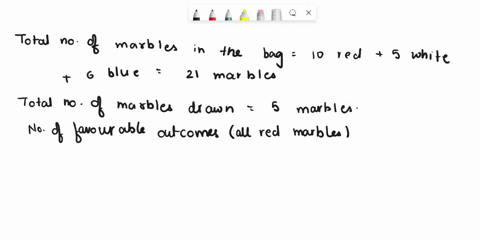 Total no. of marbles in the bag = 10 red + 5 white
+ 6 blue = 21 marbles
Total no. of marbles drawn = 5 marbles.
No. of favourable outcomes (all red marbles)